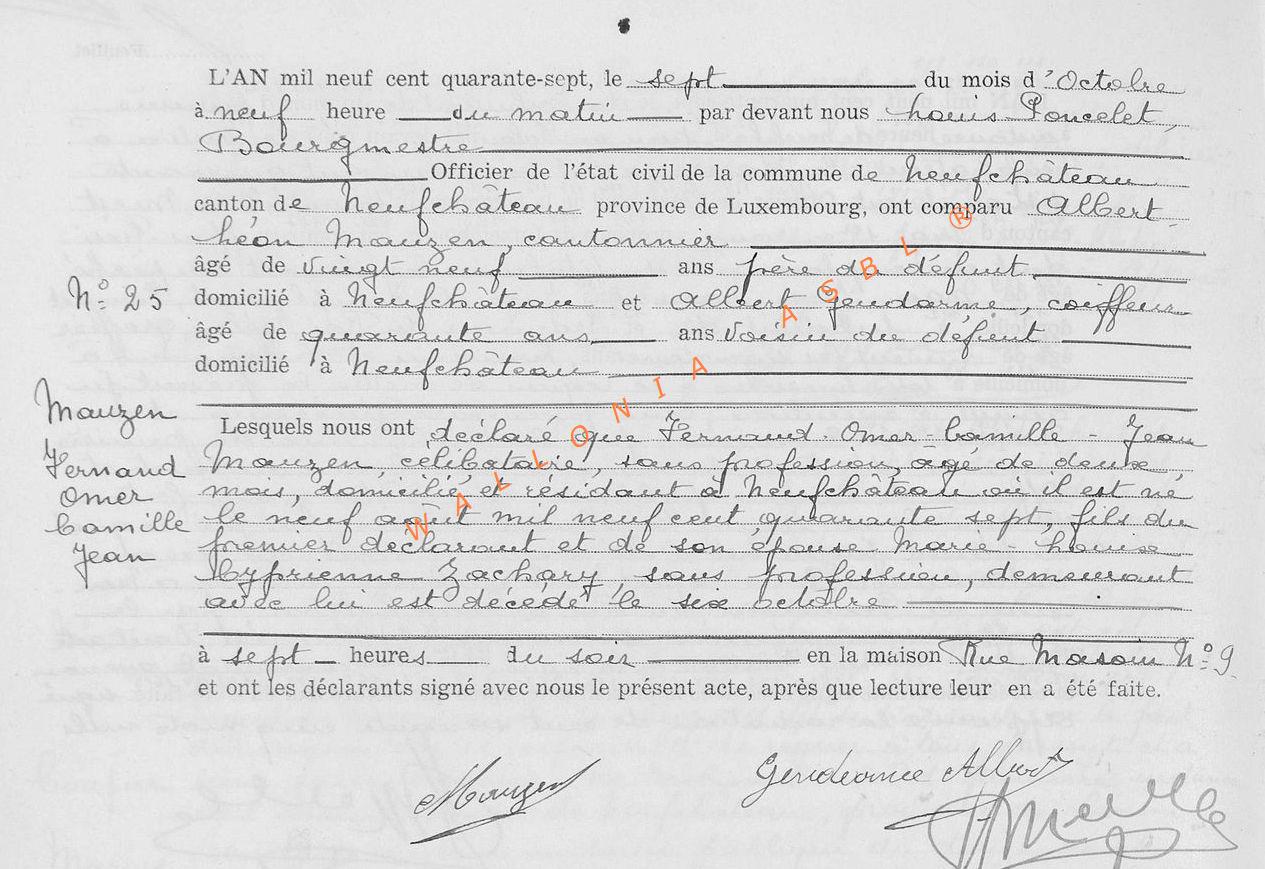 L'AN mil neuf cent quarante-sept, le sept du mois d'Octobre
à neuf heure du matin par devant nous Louis Poncelet,
Bourgmestre
Officier de l'état civil de la commune de Neufchâteau
canton de Neufchâteau province de Luxembourg, ont comparu Albert
Léon Mauzen, cantonnier
âgé de vingt neuf ans père du défunt
N° 25
domicilié à Neufchâteau et Albert Gendarme, coiffeur
âgé de quarante ans, ans voisin du défunt
domicilié à Neufchâteau
Mauzen
Fernand
Omer
Camille
Jean
Lesquels nous ont déclaré que Fernand-Omer-Camille-Jean
Mauzen, célibataire, sans profession, agé de deux
mois, domicilié et résidant à Neufchâteau où il est né
le neuf août mil neuf cent quarante sept, fils du
premier déclarant et de son épouse Marie-Louise
Cyprienne Zachary, sans profession, demeurant
avec lui est décédé le six octobre
à sept heures du soir en la maison Rue Masoin N° 9.
et ont les déclarants signé avec nous le présent acte, après que lecture leur en a été faite.
Mauzen
Gendarme Albert
WALLONIA ASBL ®